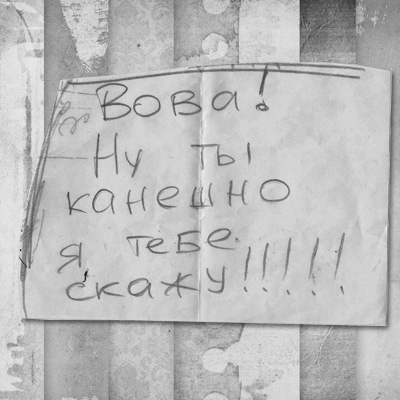 Вова!
Ну ты
канешно
я тебе
скажу!!!!!